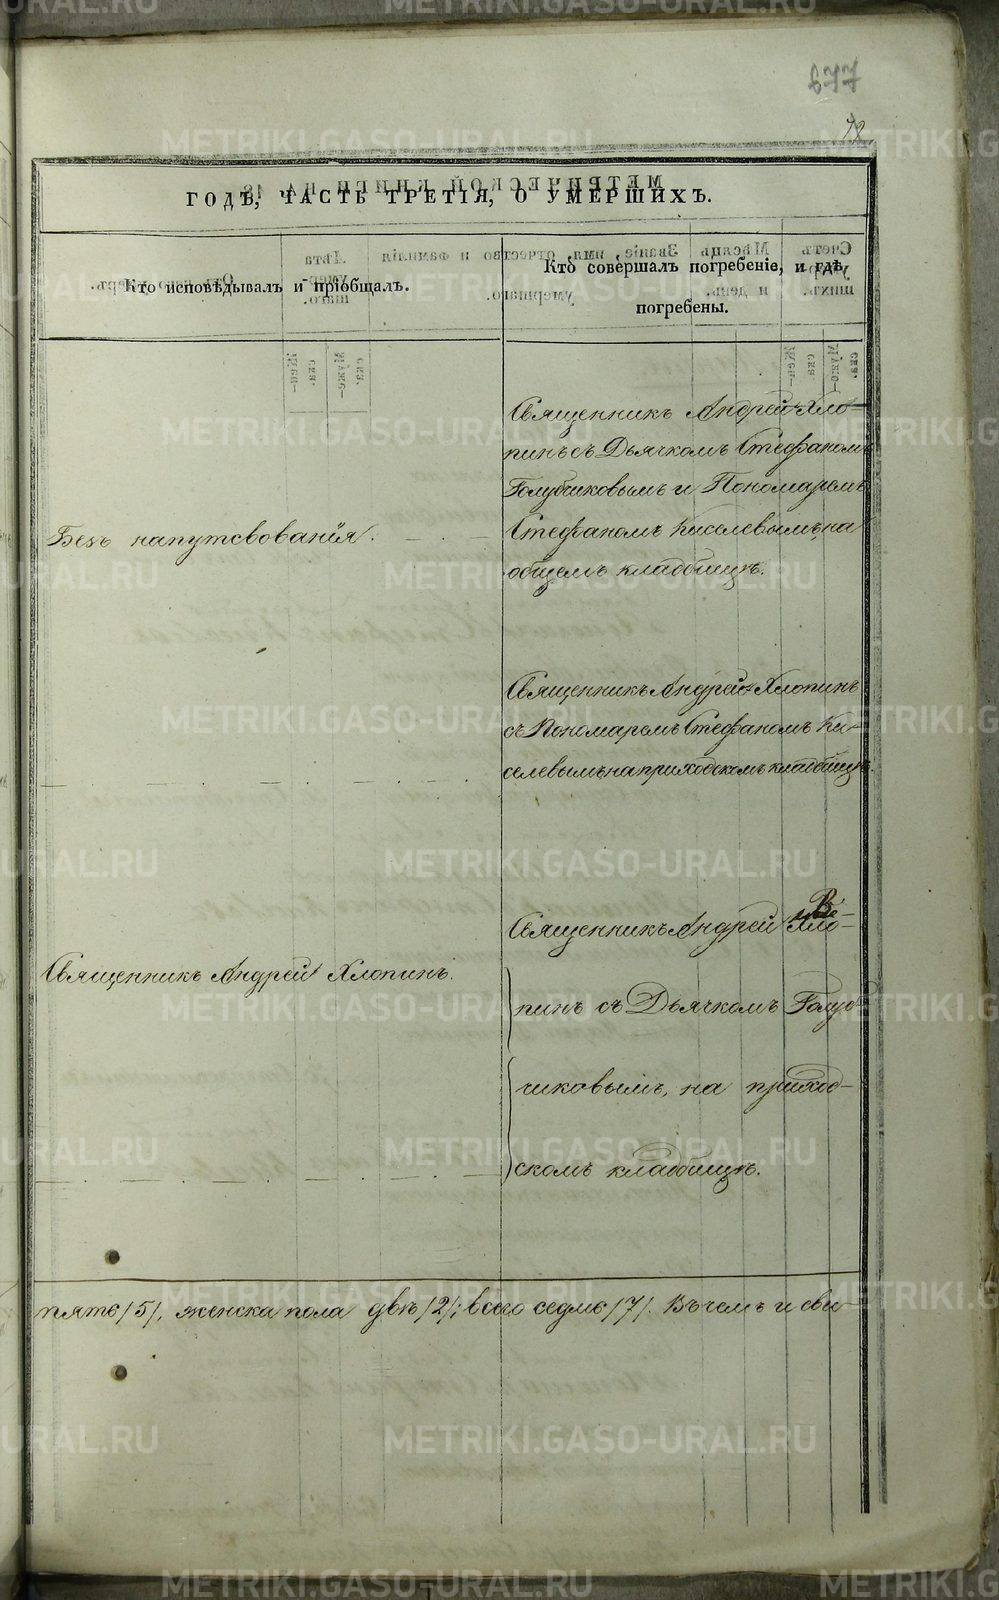 677
72
ГОДѢ, ЧАСТЬ ТРЕТІЯ, О УМЕРШИХЪ.
Кто исповѣдывалъ и пріобщалъ.
Кто совершалъ погребеніе, и гдѣ
погребены.
Священникъ Андрей Хло-
пинъ съ Дьячкомъ Стефаномъ
Голубчиковымъ и Пономаремъ
Безъ напутсвованія.
Стефаномъ Киселевымъ, на
общемъ кладбищѣ.
Священникъ Андрей Хлопинъ
съ Пономаремъ Стефаномъ Ки-
селевымъ на приходскомъ кладбищѣ.
Священникъ Андрей Хло-
Священникъ Андрей Хлопинъ.
пинъ съ Дьячкомъ Голуб-
чиковымъ, на приход-
скомъ кладбищѣ.
пять /5/, женска пола двѣ /2/; всего седмь /7/. Въ чемъ и сви-
METRIKI.GASO-URAL.RU